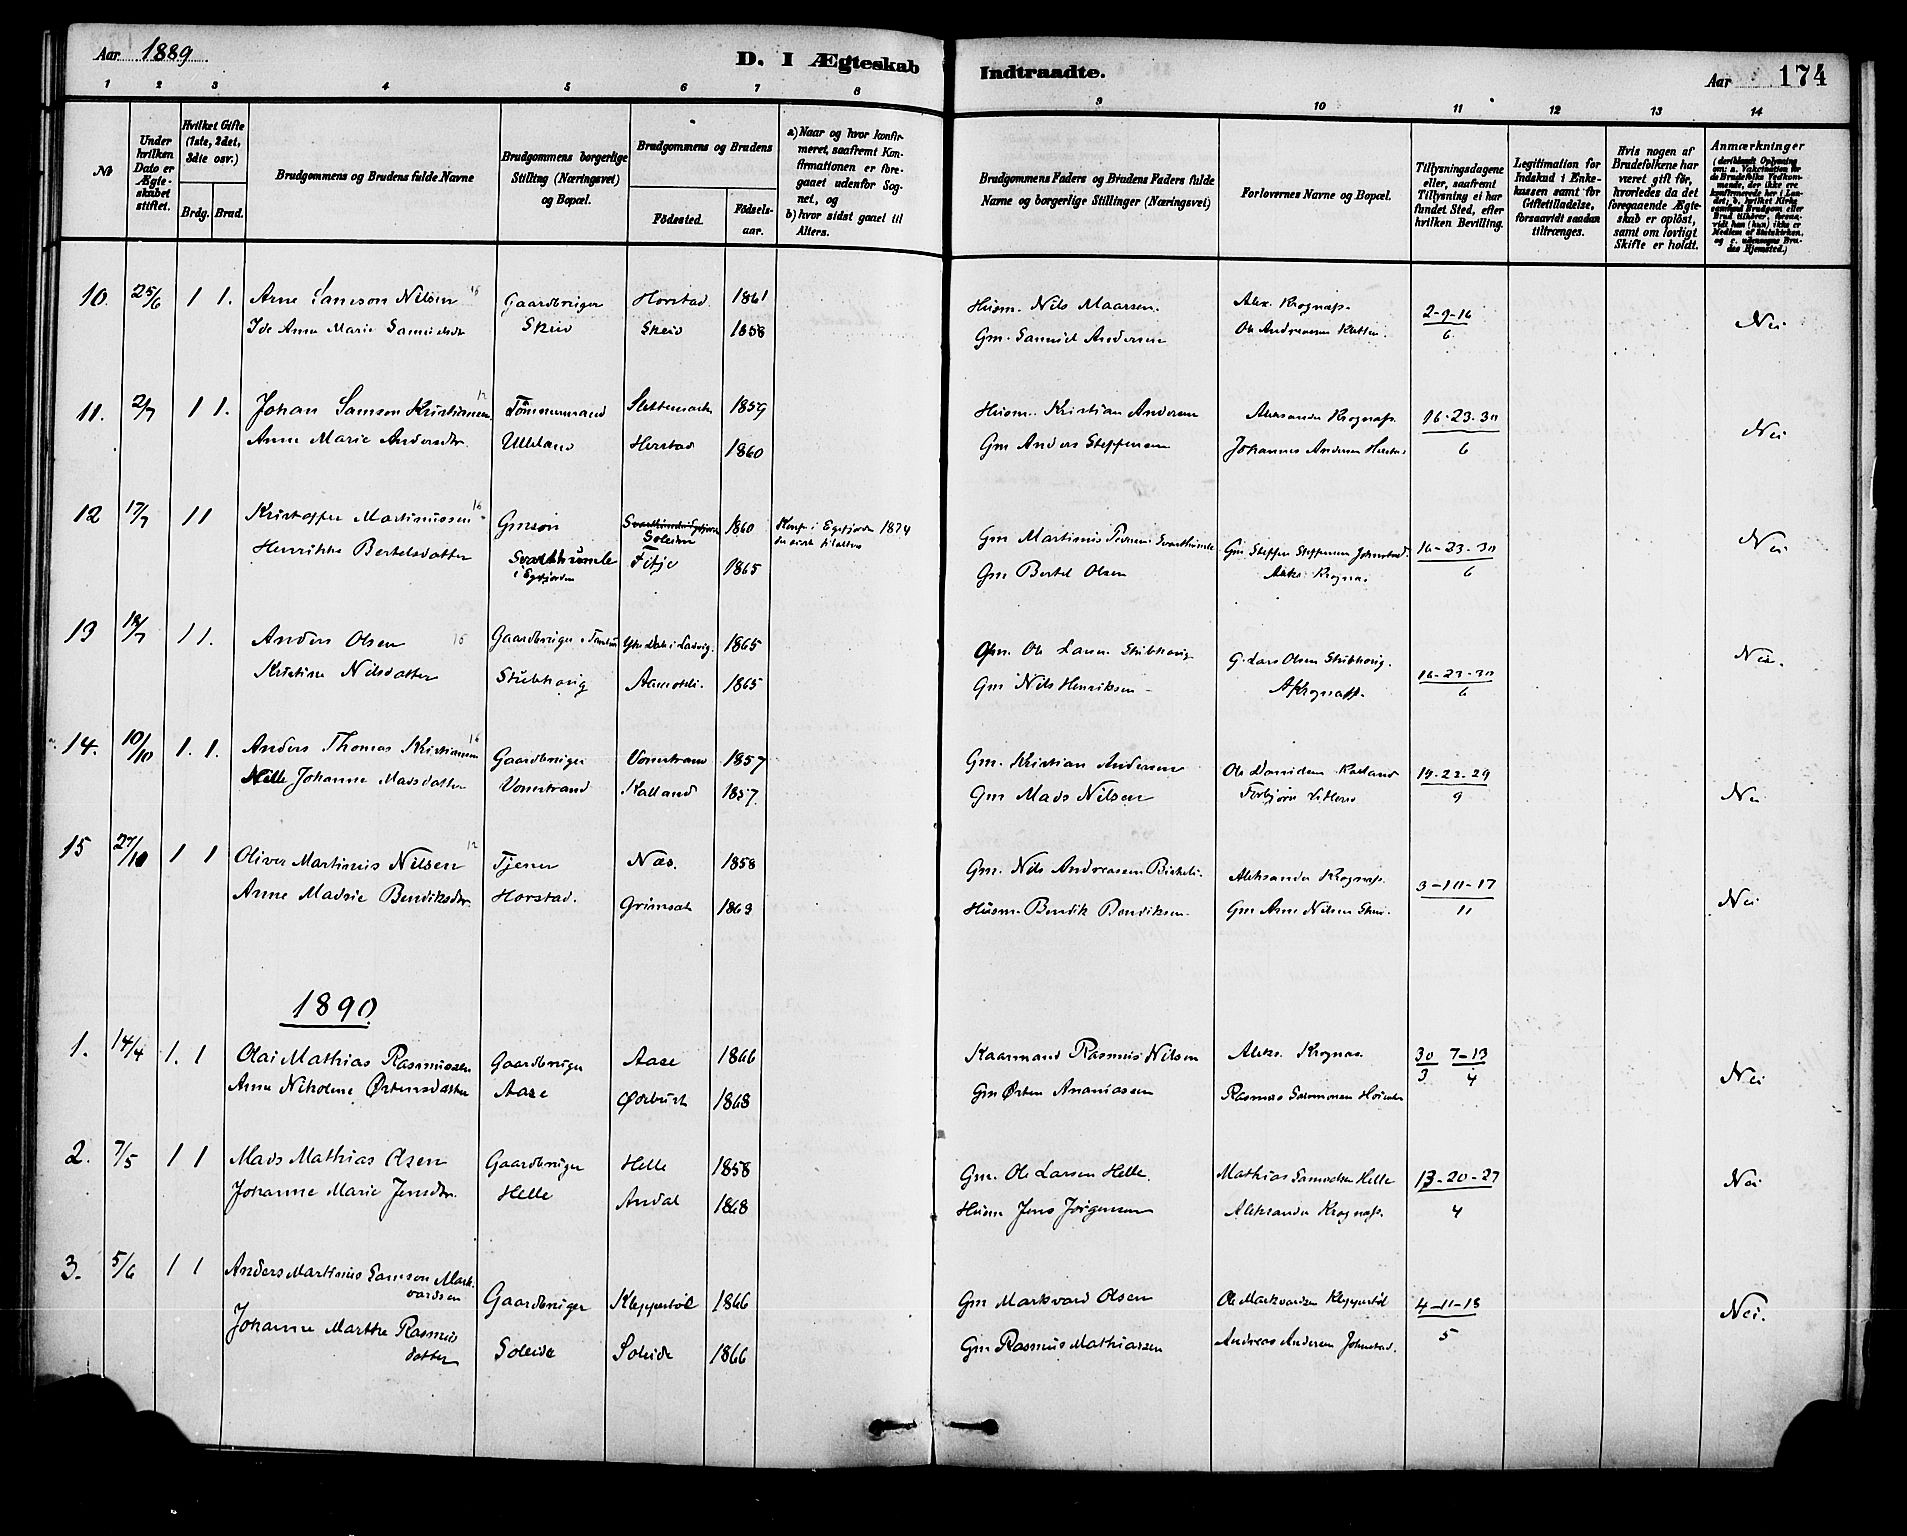 Aar 1889
D. I Ægteskab Indtraadte.
Aar 174
1 2 3 4 5 6 7 8 9 10 11 12 13 14
No
Under hvilken Dato er Ægteskabet stiftet.
Hvilket Gifte (1ste, 2det, 3dte osv.)
Brdg. Brud.
Brudgommens og Brudens fulde Navne
Brudgommens borgerlige Stilling (Næringsvei) og Bopæl.
Brudgommens og Brudens
Födested.
Födselsaar.
a) Naar og hvor konfirmeret, saafremt Konfirmationen er foregaaet udenfor Sognet, og
b) hvor sidst gaaet til Alters.
Brudgommens Faders og Brudens Faders fulde Navne og borgerlige Stillinger (Næringsvei)
Forlovernes Navne og Bopæl.
Tillysningsdagene eller, saafremt Tillysning ei har fundet Sted, efter hvilken Bevilling.
Legitimation for Indskud i Enkekassen samt for Giftetilladelse, forsaavidt saadan tiltrænges.
Hvis nogen af Brudefolkene har været gift før, hvorledes da det foregaaende Ægteskab er oplöst, samt om lovligt Skifte er holdt.
Anmærkninger
10. 25/6 1 1. Arne Samson Nilsen Gaardbruger Horstad 1861 Husm. Nils Maarsen. Alex. Krognæss. 2-9-16
Ide Anne Marie Samuelsdr Skeid Skeid 1858 Gm. Samuel Andersen Ole Andreasen 6 Nei
11. 2/7 1 1. Johan Samson Kristiansen Tömmermand 1859 Husm. Kristian Andersen Aleksander Krognæss. 16-23-30
Anne Marie Andersdr. Ulleland Herstad 1860 Gm Anders Steffensen Johannes Andersen 6 Nei
12 17/7 1 1 Kristoffer Martinussen Gmsøn Soleim 1860 Konf. i Egefjorden 1874 Gm Martinus Gm Steffen Steffensen Johnstad 16-23-30
Henrikke Bertelsdatter Svarthumle i Egefjorden Fitje 1865 Gm Bertel Olsen Aleks. Krognæs. 6 Nei
13 18/7 1 1. Anders Olsen Gaardbruger 1865 Gm. Ole Larsen Stubhaug G. Lars Olsen Stubhaug. 16-23-30
Kristine Nilsdatter Stubhaug 1865 Gm Nils Henriksen A Krognæss. 6 Nei.
14. 10/10 1. 1. Anders Thomas Kristiansen Gaardbruger Vonestrand 1857 Gm. Kristian Andersen Ole Kalland 15-22-29
Johanne Madsdatter Vonestrand Kalland 1857. Gm Mads Nilsen Torbjørn 9 Nei
15 27/10 1 1 Oliver Martinus Nilsen Tjener Næs. 1858 Gm. Nils Andreassen Birkeli. Aleksander Krognæss. 3-10-17
Anne Madsie Bendiksdr. Horstad. Grimset 1863 Husm. Bendik Bendiksen. Gm Arne Nilsen Skei. 11 Nei
1890
1. 14/4 1. 1 Olai Mathias Rasmussen Gaardbruger Aase 1866 Kaarmand Rasmus Nilsen Aleks. Krognæs. 30/3 7-13
Anne Nikoline Østensdatter Aase 1868 Gm Østen Ananiassen Rasmus Salomonsen 4 Nei
2. 7/5 1 1 Mads Mathias Olsen Gaardbruger Helle 1858 Gm. Ole Larsen Helle. Mathias Helle 13-20-27
Johanne Marie Jensdtr. Helle Andal 1868 Husm Jens Jørgensen Aleksander Krognæss. 4 Nei
3. 5/6 1 1 Anders Martinus Samson Markvardsen Gaardbruger Kleppestöl 1866 Gm Markvard Olsen Ole Markvardsen Kleppestöl 4-11-18
Johanne Marthe Rasmusdatter Soleide Soleide 1866 Gm Rasmus Mathiassen Andreas Andersen Johnstad. 5 Nei.